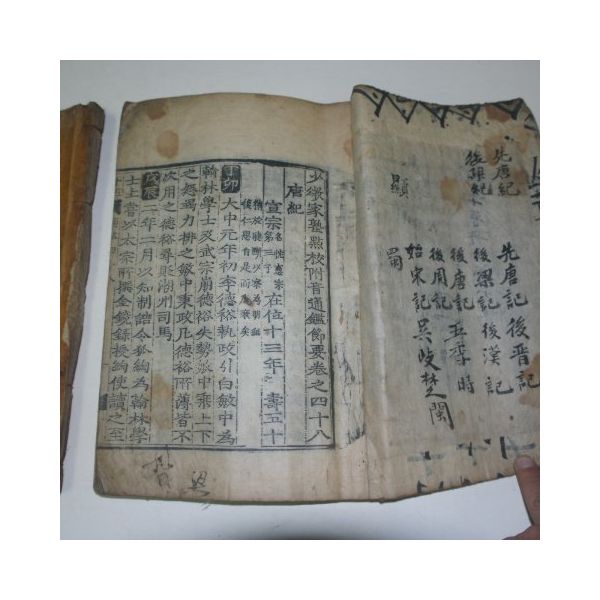 先唐紀
先唐記後晉記
後梁記後漢記
後唐記五季時
後周記
始宋記吳岐楚閩
少微家塾點校附音通鑑節要卷之四十八
唐紀
宣宗在位十三年壽五十
丁卯大中元年初李德裕執政引白敏中為
翰林學士及武宗崩德裕失勢敏中乘上下
之怒竭力排之敏中秉政凡德裕所薄皆不
次用之德裕尋貶潮州司馬
戊辰二年二月以知制誥令狐綯為翰林學
士上嘗以太宗所撰金鏡錄授綯使讀之至